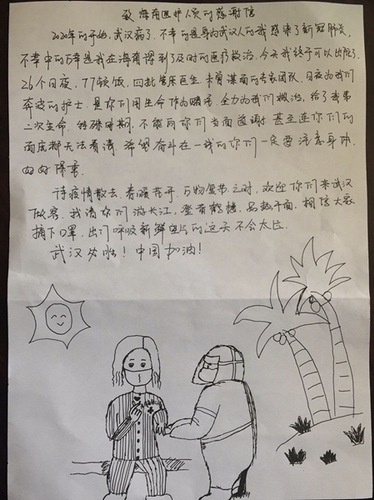 致海南医护人员的感谢信
2020年的开始，武汉病了，不幸的是身为武汉人的我感染了新冠肺炎，
不幸中的万幸是我在海南得到了及时的医疗救治，今天我终于可以出院了。
26个日夜，77顿饭，四批管床医生，未曾谋面的专家团队，日夜为我们
奔波的护士，是你们用生命作为赌注，全力为我们救治，给了我第
二次生命，特殊时期，不能向你们当面致谢，甚至连你们的
面庞都无法看清，希望奋斗在一线的你们一定要注意身体，
待疫情散去，春暖花开，万物复苏之时，欢迎你们来武汉
做客，我请你们游长江，登黄鹤楼，品热干面，相信大家
摘下口罩，出门呼吸新鲜空气的这天不会太远。
武汉必胜！中国加油！